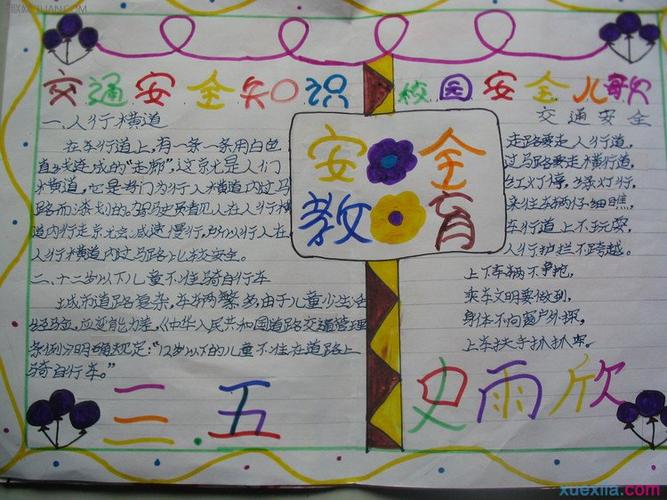 交通安全知识
一、人行横道
在车行道上,有一条一条用白色
直线连成的“走廊”,这就是人们
横道,它是专门为行人横道内过马
路而漆划的。驾驶员看见人在人行横
道内行走就会减速慢行,所以行人在
人行横道内过马路比较安全。
二、十二岁以下儿童不准骑自行车
城市道路复杂,车辆繁多由于儿童少生活
经验,应变能力差,《中华人民共和国道路交通管理
条例》明确规定:“12岁以下的儿童不准在道路上
骑自行车。”
三.五
安全
教育
校园安全儿歌
交通安全
走路要走人行道,
过马路要走横行道,
红灯停,绿灯行,
来往车辆仔细瞧,
车行道上不玩耍,
人行护栏不跨越。
上下车辆不争抢,
乘车文明要做到,
身体不向窗户外探,
上车扶手扒扒牢。
史雨欣
xuexila.com